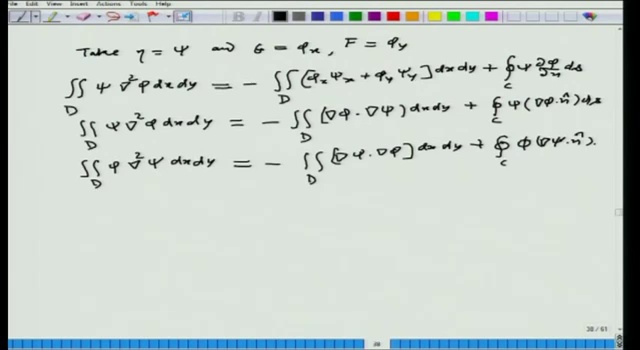 File Edit View Insert Actions Tools Help
Take η = ψ and G = φx, F = φy
∬D ψ ∇²φ dxdy = − ∬D [φxψx + φyψy] dxdy + ∮c ψ ∂φ/∂n ds
∬D ψ ∇²φ dxdy = − ∬D (∇φ · ∇ψ) dxdy + ∮c ψ (∇φ · n̂) ds
∬D φ ∇²ψ dxdy = − ∬D [∇φ · ∇φ] dxdy + ∮c φ (∇ψ · n̂).
38 / 61
38